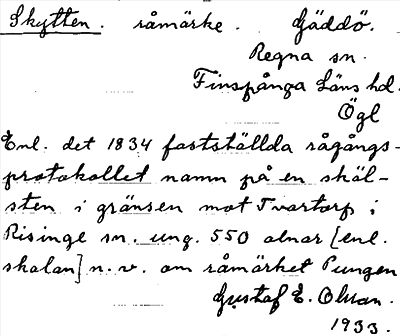 Skytten. råmärke. Gäddö.
Regna sn.
Finspånga Läns hd.
Ögl
Enl. det 1834 fastställda rågångs-
protokollet namn på en skäl-
sten i gränsen mot Tvartorp i
Risinge sn. ung. 550 alnar [enl.
skalan] n. v. om råmärket Pungen
Gustaf E. Olsson.
1933.